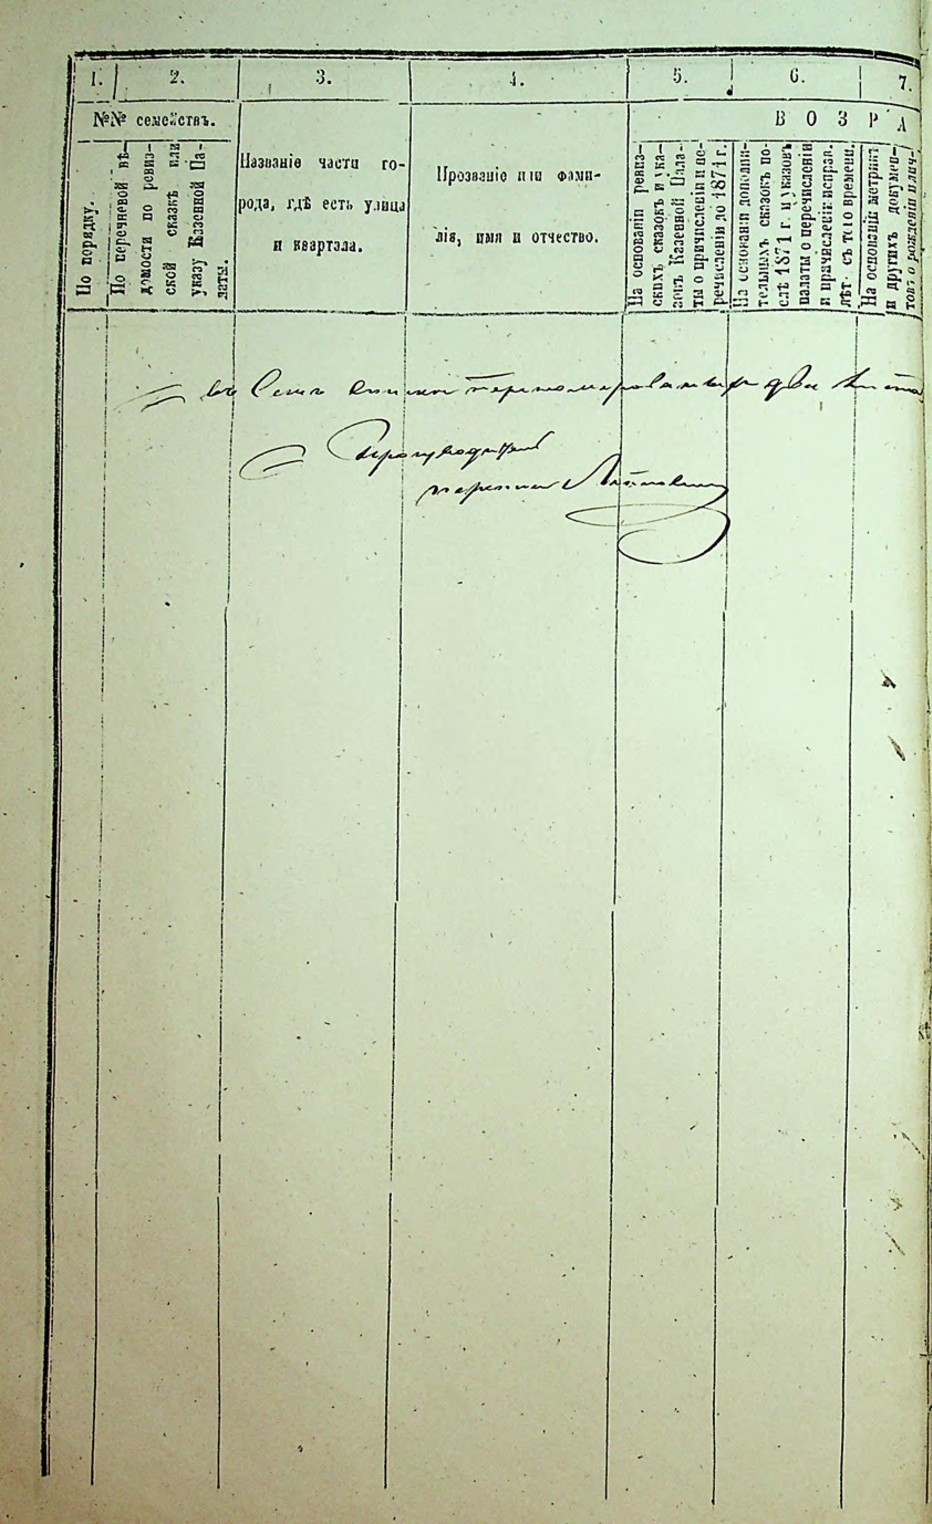 1. 2. 3. 4. 5. 6. 7.
№№ семействъ.
В О З Р А
По порядку.
По перечневой вѣ-
домости по ревиз-
ской сказкѣ или
указу Казенной Па-
латы.
Названіе части го-
рода, гдѣ есть улица
и квартала.
Прозваніе или фами-
лія, имя и отчество.
На основаніи ревиз-
скихъ сказокъ и ука-
зовъ Казенной Пала-
ты о причисленіи и пе-
речисленіи до 1871 г.
На основаніи дополни-
тельныхъ сказокъ по-
слѣ 1871 г. и указовъ
палаты о перечисленіи
и причисленіи исправ.
лѣт. съ того времени.
На основаніи метрик
и другихъ докумен-
товъ о рожденіи и лич-
въ семъ спискѣ перенумерованныхъ два листа
Производитель
переписи